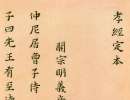 孝經定本
開宗明義章
仲尼居曾子侍
子曰先王有至德